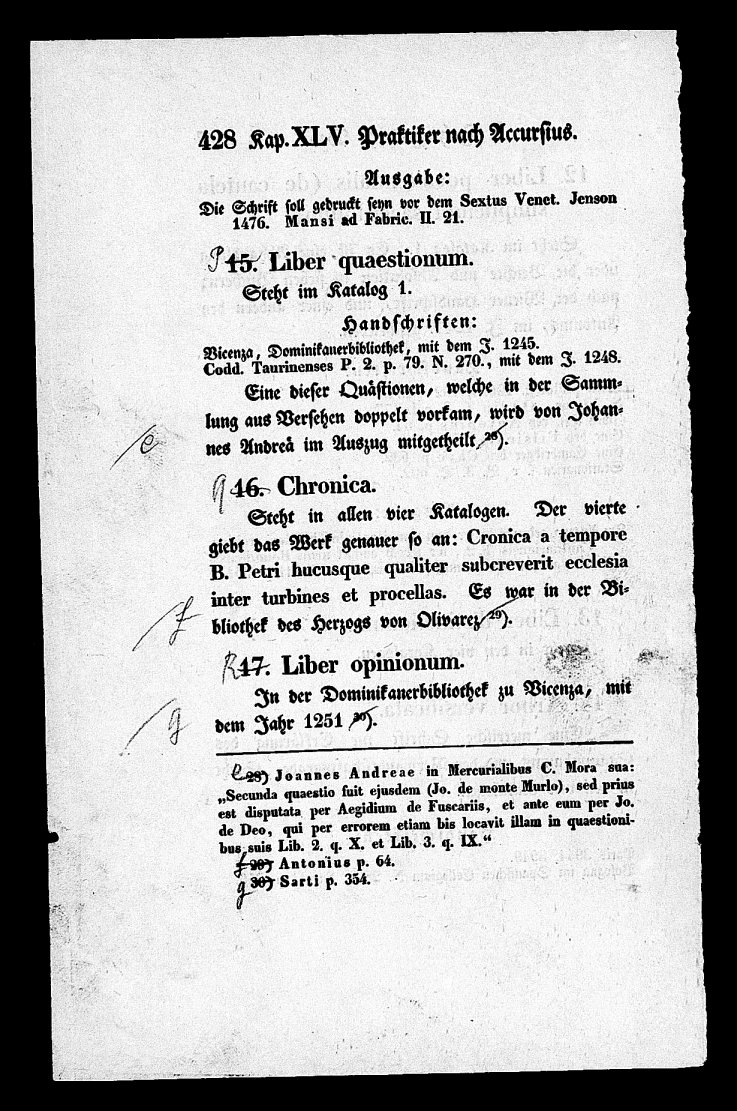 428 Kap. XLV. Praktiker nach Accursius.
Ausgabe:
Die Schrift soll gedruckt seyn vor dem Sextus Venet. Jenson
1476. Mansi ad Fabric. II. 21.
P 15. Liber quaestionum.
Steht im Katalog 1.
Handschriften:
Vicenza, Dominikanerbibliothek, mit dem J. 1245.
Codd. Taurinenses P. 2. p. 79. N. 270., mit dem J. 1248.
Eine dieser Quästionen, welche in der Samm-
lung aus Versehen doppelt vorkam, wird von Johan-
e nes Andreä im Auszug mitgetheilt 28).
q 16. Chronica.
Steht in allen vier Katalogen. Der vierte
giebt das Werk genauer so an: Cronica a tempore
B. Petri hucusque qualiter subcreverit ecclesia
inter turbines et procellas. Es war in der Bi-
f bliothek des Herzogs von Olivarez 29).
R 17. Liber opinionum.
In der Dominikanerbibliothek zu Vicenza, mit
g dem Jahr 1251 30).
e 28) Joannes Andreae in Mercurialibus C. Mora sua:
„Secunda quaestio fuit ejusdem (Jo. de monte Murlo), sed prius
est disputata per Aegidium de Fuscariis, et ante eum per Jo.
de Deo, qui per errorem etiam bis locavit illam in quaestioni-
bus suis Lib. 2. q. X. et Lib. 3. q. IX.“
f 29) Antonius p. 64.
g 30) Sarti p. 354.